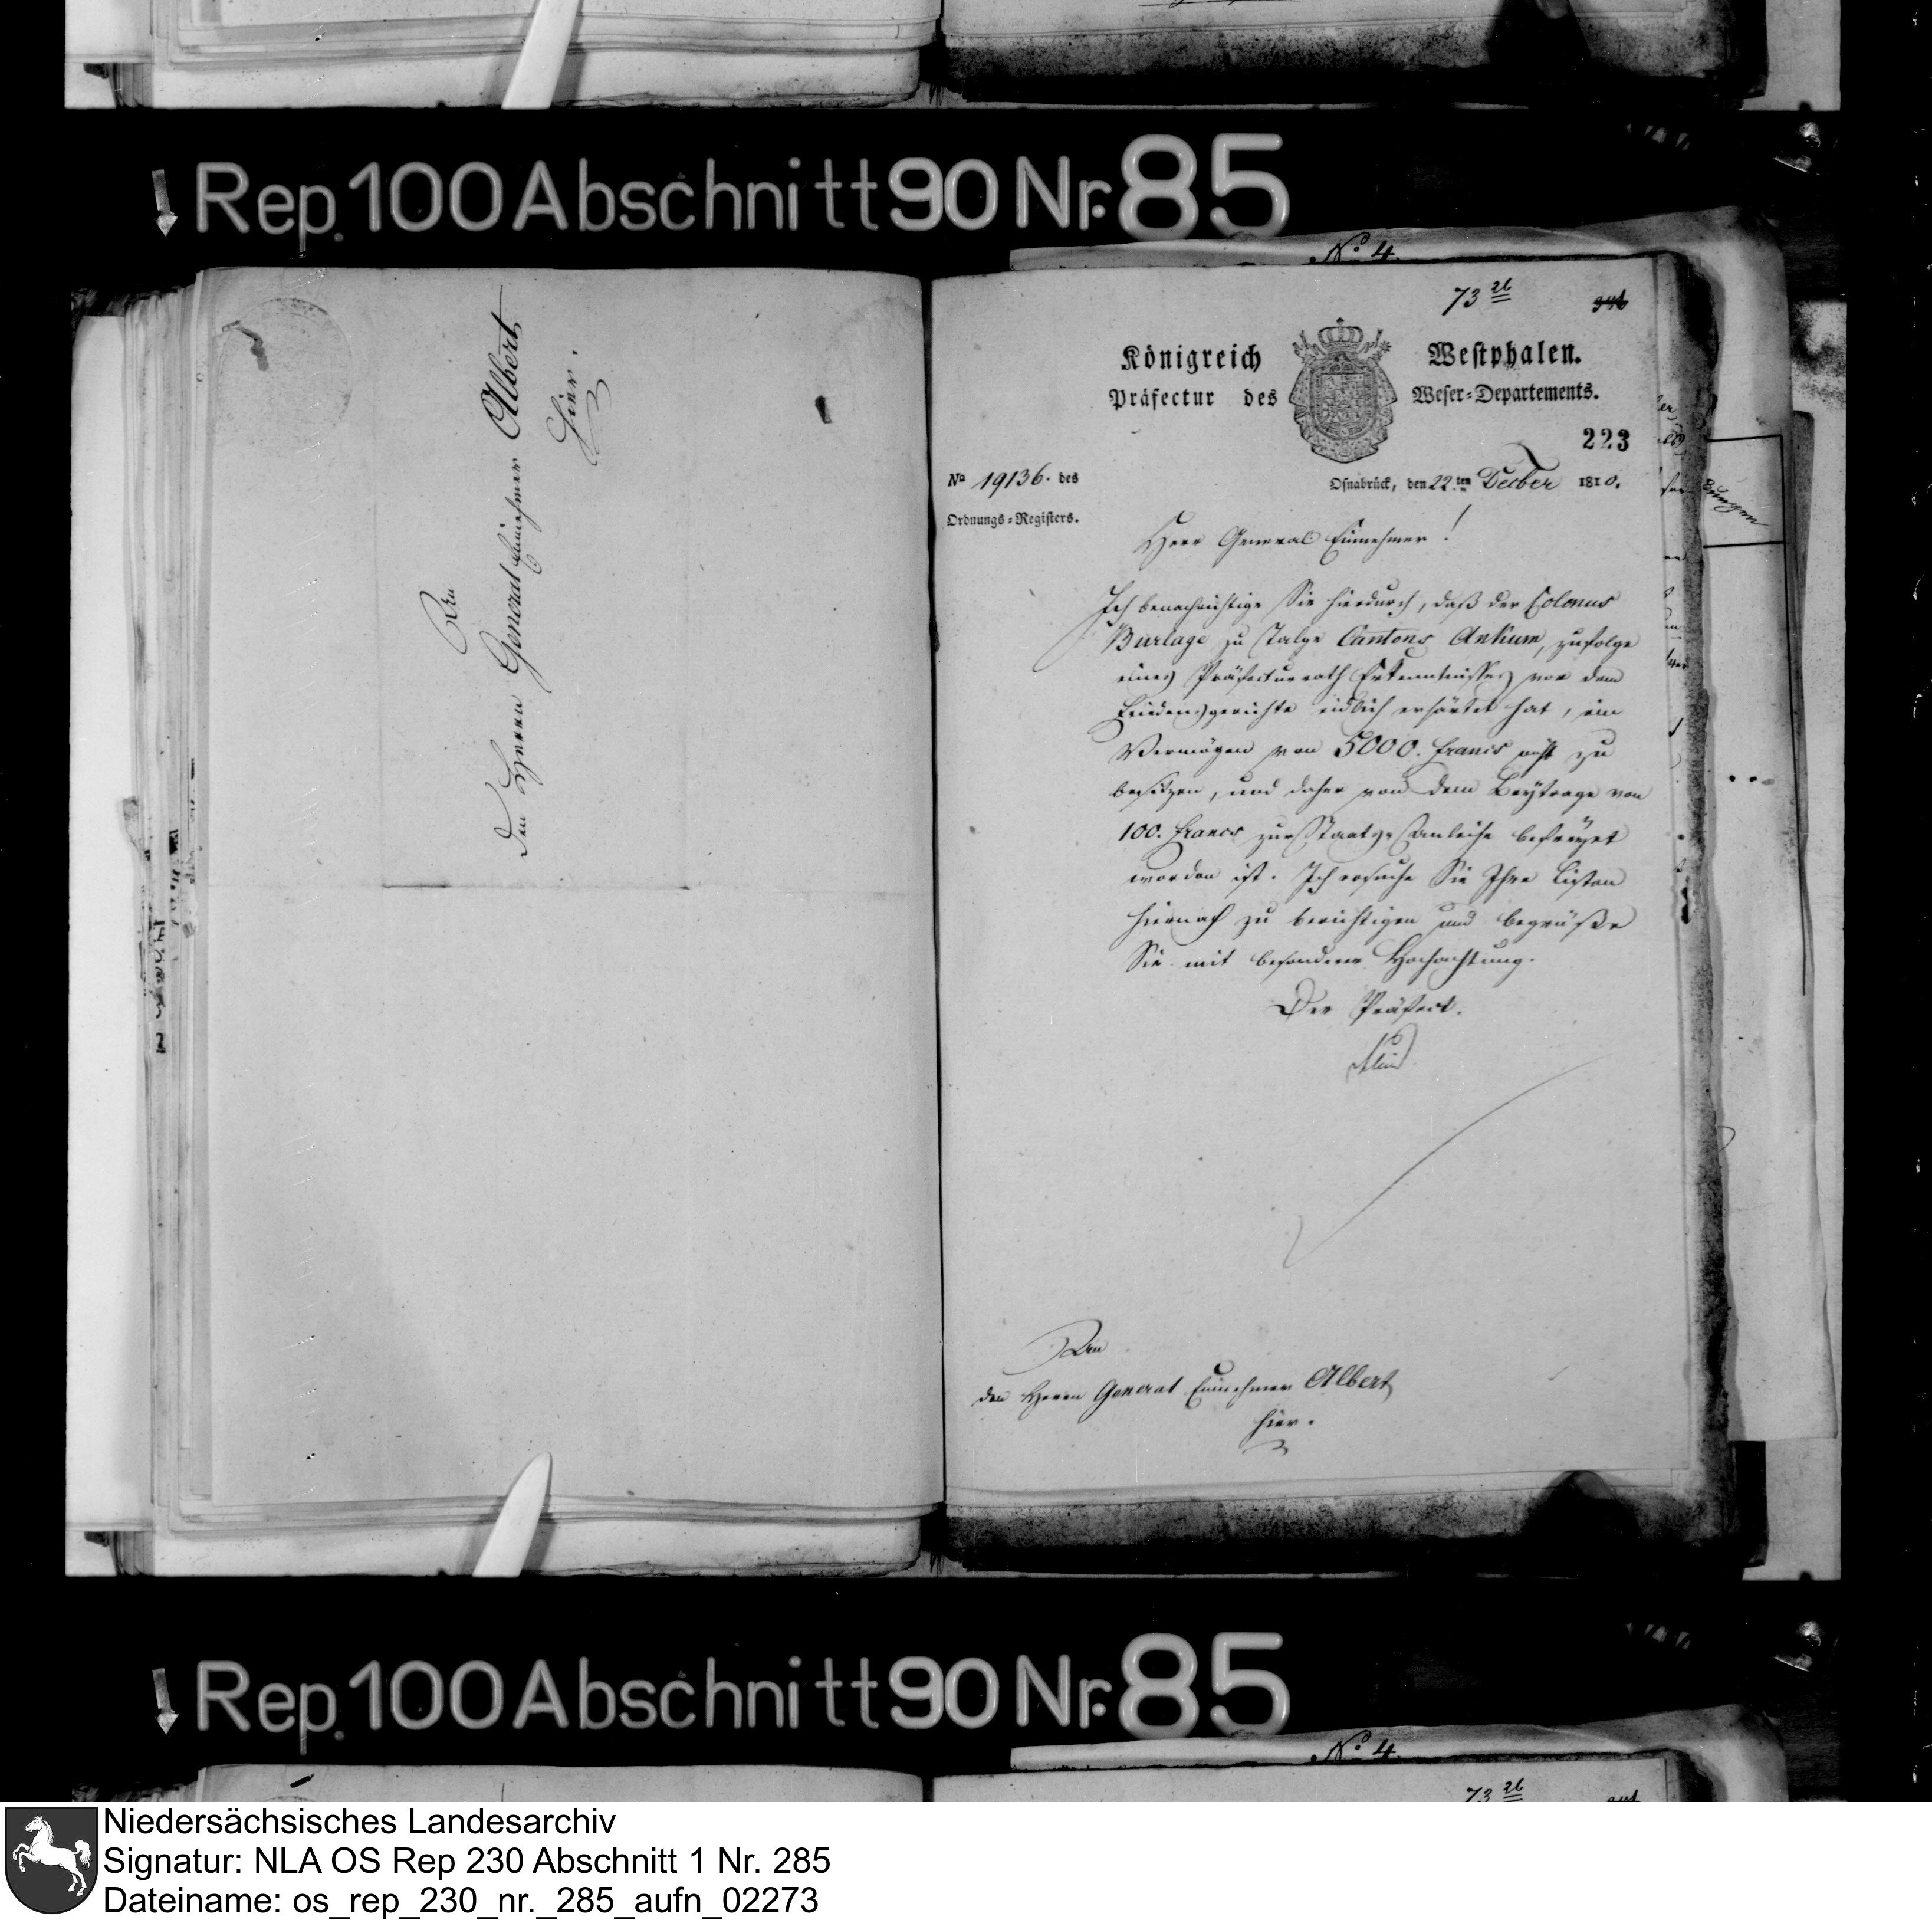 Rep. 100 Abschnitt 90 Nr. 85
An
den Herrn General Einnehmer Albert,
Hier.
No. 4.
73 26
Königreich Westphalen.
Präfectur des Weser=Departements.
223
No 19136. des
Ordnungs=Registers.
Osnabrück, den 22.ten Decber 1810.
Herr General Einnehmer!
Ich benachrichtige Sie hierdurch, daß der Colonus
Burlage zu Talge Cantons Ankum, zufolge
eines Präfecturrath Erkenntnisses vor dem
Friedensgerichte eidlich erhärtet hat, ein
Vermögen von 5000. Francs nicht zu
besitzen, und daher von dem Beytrage von
100. Francs zur Staats=Anleihe befreyet
worden ist. Ich ersuche Sie Ihre Listen
hiernach zu berichtigen und begrüße
Sie mit besonderer Hochachtung.
Der Präfect.
An
den Herrn General Einnehmer Albert,
hier.
Rep. 100 Abschnitt 90 Nr. 85
No. 4.
73 26
Niedersächsisches Landesarchiv
Signatur: NLA OS Rep 230 Abschnitt 1 Nr. 285
Dateiname: os_rep_230_nr._285_aufn_02273